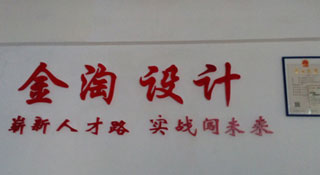 金淘设计
崭新人才路 实战闯未来